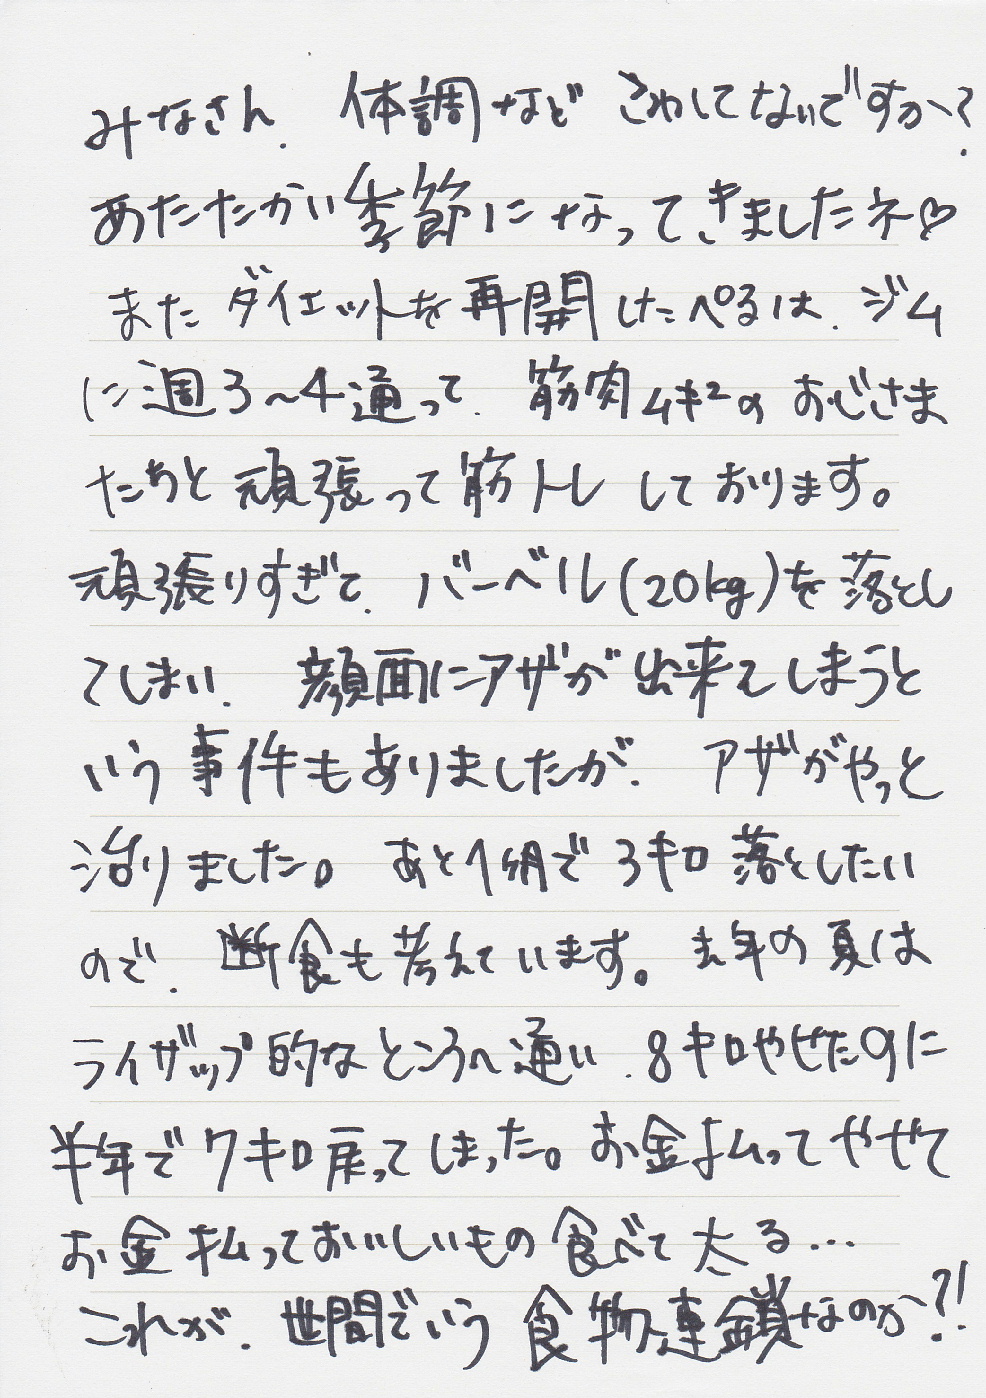 みなさん、体調など こわしてないですか?
あたたかい季節になってきましたネ♡
またダイエットを再開したぺるは、ジム
に週3〜4通って、筋肉ムキ²の おじさま
たちと 頑張って筋トレ しております。
頑張りすぎて、バーベル(20kg)を落とし
てしまい、顔面にアザが出来てしまうと
いう事件もありましたが、アザがやっと
治りました。あと1ヶ月で3キロ落としたい
ので、断食も考えています。去年の夏は
ライザップ的なところへ通い、8キロやせたのに
半年で7キロ戻ってしまった。お金払ってやせて
お金払っておいしいもの食べて太る...
これが、世間でいう食物連鎖なのか?!